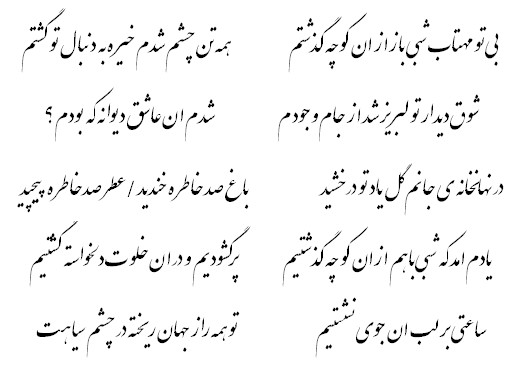 بی تو مهتاب شبی باز از ان کوچه گذشتم همه تن چشم شدم خیره به دنبال تو گشتم
شوق دیدار تو لبریز شد از جام وجودم شدم ان عاشق دیوانه که بودم ؟
در نهانخانه ی جانم گل یاد تو درخشید باغ صد خاطره خندید / عطر صد خاطره پیچید
یادم امد که شبی با هم از ان کوچه گذشتیم پر گشودیم و در ان خلوت دلخواسته گشتیم
ساعتی بر لب ان جوی نشستیم تو همه راز جهان ریخته در چشم سیاهت